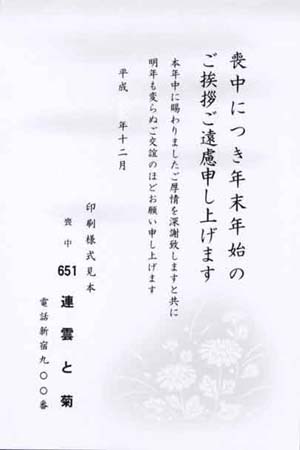 喪中につき年末年始の
ご挨拶ご遠慮申し上げます
本年中に賜わりましたご厚情を深謝致しますと共に
明年も変らぬご交誼のほどお願い申し上げます
平成　年十二月
印刷様式見本
喪中
651 連雲と菊
電話新宿九〇〇番